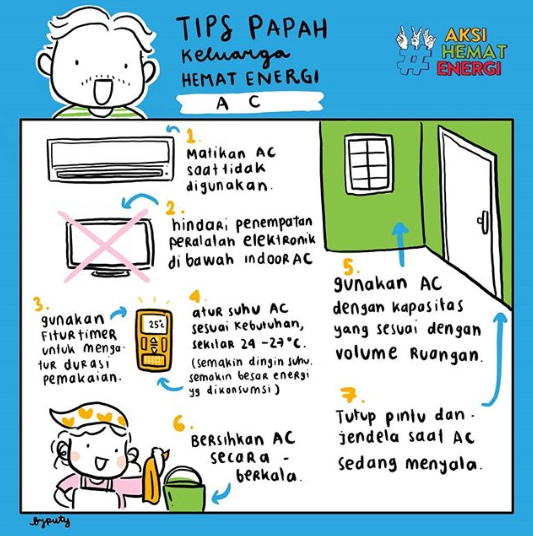 TIPS PAPAH
Keluarga
HEMAT ENERGI
AC
#
AKSI
HEMAT
ENERGI
1.
Matikan AC
saat tidak
digunakan.
2.
hindari penempatan
peralalan elektronik
di bawah indoor AC
3.
gunakan
fitur timer
untuk menga-
tur durasi
pemakaian.
25°c
4.
atur suhu AC
sesuai kebutuhan,
sekitar 24-27°C.
(semakin dingin suhu.
semakin besar energi
yg dikonsumsi)
5.
gunakan AC
dengan kapasitas
yang sesuai dengan
volume Ruangan.
6.
Bersihkan AC
secara -
berkala.
7.
Tutup pintu dan -
jendela saat AC
sedang menyala.
byputy